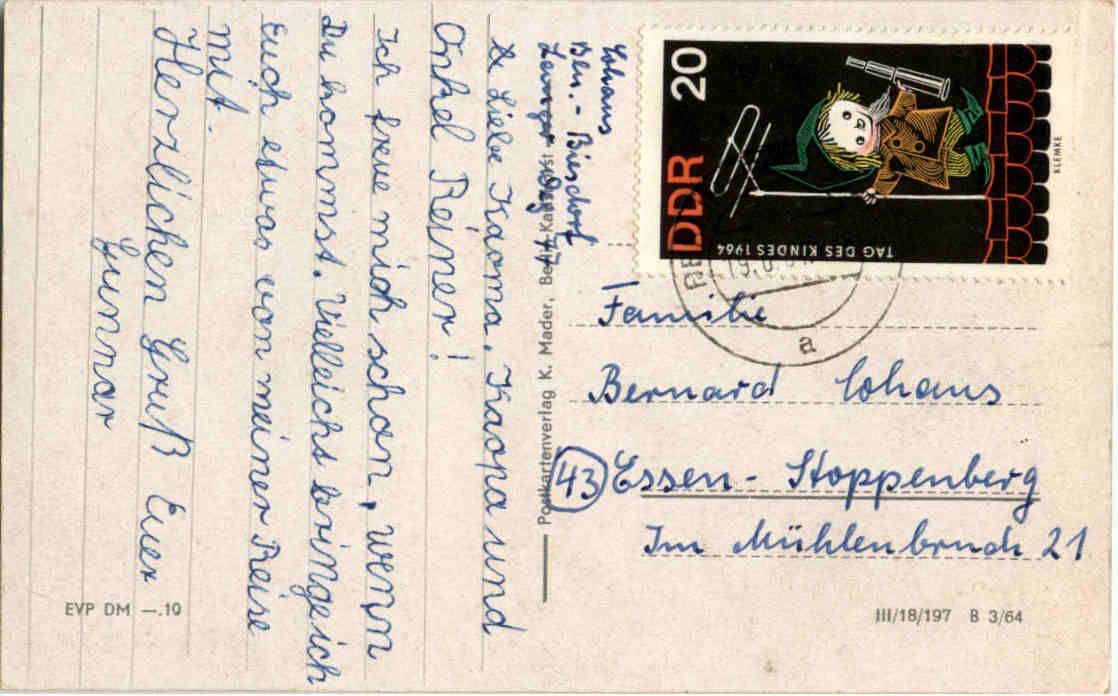 Lohaus
Bln.-Biesdorf
& Liebe Kaoma, Kaopa und
Onkel Reiner!
Ich freue mich schon, wenn
Du kommst. Vielleicht bringe ich
Euch etwas von meiner Reise
mit.
Herzlichen Gruß Euer
Gunnar
EVP DM —.10
Postkartenverlag K. Mader, Berlin-Karlshorst
20
DDR
TAG DES KINDES 1964
KLEMKE
a
Familie
Bernard Lohaus
(43) Essen-Stoppenberg
Im Mühlenbruch 21
III/18/197 B 3/64